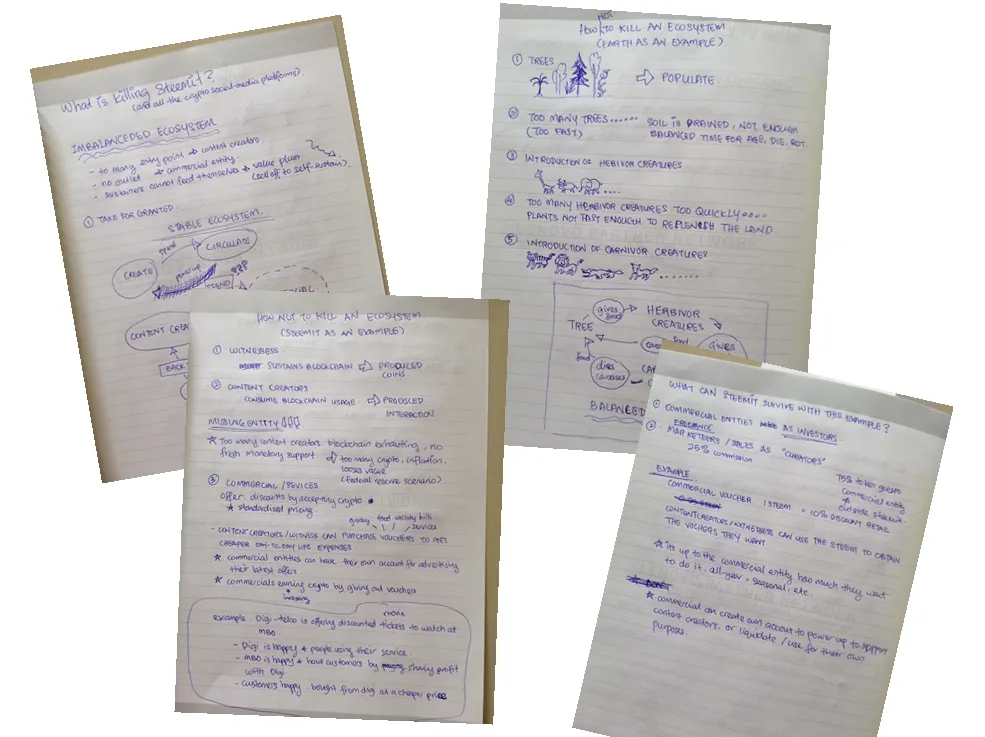 What is killing Steemit?
(and all the crypto social-media platforms).
IMBALANCEDED ECOSYSTEM
- to many entry point → content creators
- no outlet → commercial entity.
- sustainers cannot feed themselves → value plush
(sell off to self-sustain).
① TAKE FOR GRANTED.
STABLE ECOSYSTEM.
CREATE
spend
CIRCULATE
power up
???
CONTENT CREA
BACK
HOW NOT TO KILL AN ECOSYSTEM.
(EARTH AS AN EXAMPLE)
① TREES
⇨ POPULATE.
② TOO MANY TREES...... SOIL IS DRAINED, NOT ENOUGH
(TOO FAST) BALANCED TIME FOR AGE, DIE, ROT.
③ INTRODUCTION OF HEBIVOR CREATURES
....
④ TOO MANY HERBIVOR CREATURES TOO QUICKLY....
PLANTS NOT FAST ENOUGH TO REPLENISH THE LAND
⑤ INTRODUCTION OF CARNIVOR CREATURES
........
gives food → HERBIVOR
TREE CREATURES
food
food
gives
dies
carcasses
BALANCED
HOW NOT TO KILL AN ECOSYSTEM
(STEEMIT AS AN EXAMPLE)
① WITNESSESS
SUSTAINS BLOCKCHAIN ⇨ PRODUCED
COINS
② CONTENT CREATORS
CONSUME BLOCKCHAIN USAGE ⇨ PRODUCED
INTERACTION
MISSING ENTITY
★ Too many content creators blockchain exhausting, no
fresh monetary support ⇨ too many crypto, inflation,
looses value
(federal reserve scenario)
③ COMMERCIAL / SEVICES
offer discounts by accepting crypto
★ standardised pricing
grocery food utility bills service
- CONTENT CREATORS/WITNESS CAN PURCHASE VOUCHERS TO GET
CHEAPER DAY-TO-DAY LIFE EXPENSES
★ commercial entities can have their own account for advertising
their latest offers
★ commercials earning crypto by giving out vouchers
+
investing
movie
example. Digi-telco is offering discounted tickets to watch at
MBO.
- Digi is happy + people using their service.
- MBO is happy + have customers by sharing profit
with Digi
- Customers happy. bought from digi at a cheaper price
WHAT CAN STEEMIT SURVIVE WITH THIS EXAMPLE?
① COMMERCIAL ENTITIES AS INVESTORS.
② MARKETEERS / SALES AS "CURATORS"
25% commission
75% token goes to
commercial entity
outside steemit
EXAMPLE
COMMERCIAL VOUCHER 1 STEEM = 10% DISCOUNT RETAIL
CONTENTCREATORS/WITNESSESS CAN USE THE STEEM TO OBTAIN
THE VOCHERS THEY WANT
★ its up to the commercial entity how much they want
to do it, all-year, seasonal, etc.
★ commercial can create own account to power up to support
content creators. or liquidate / use for their own
purposes